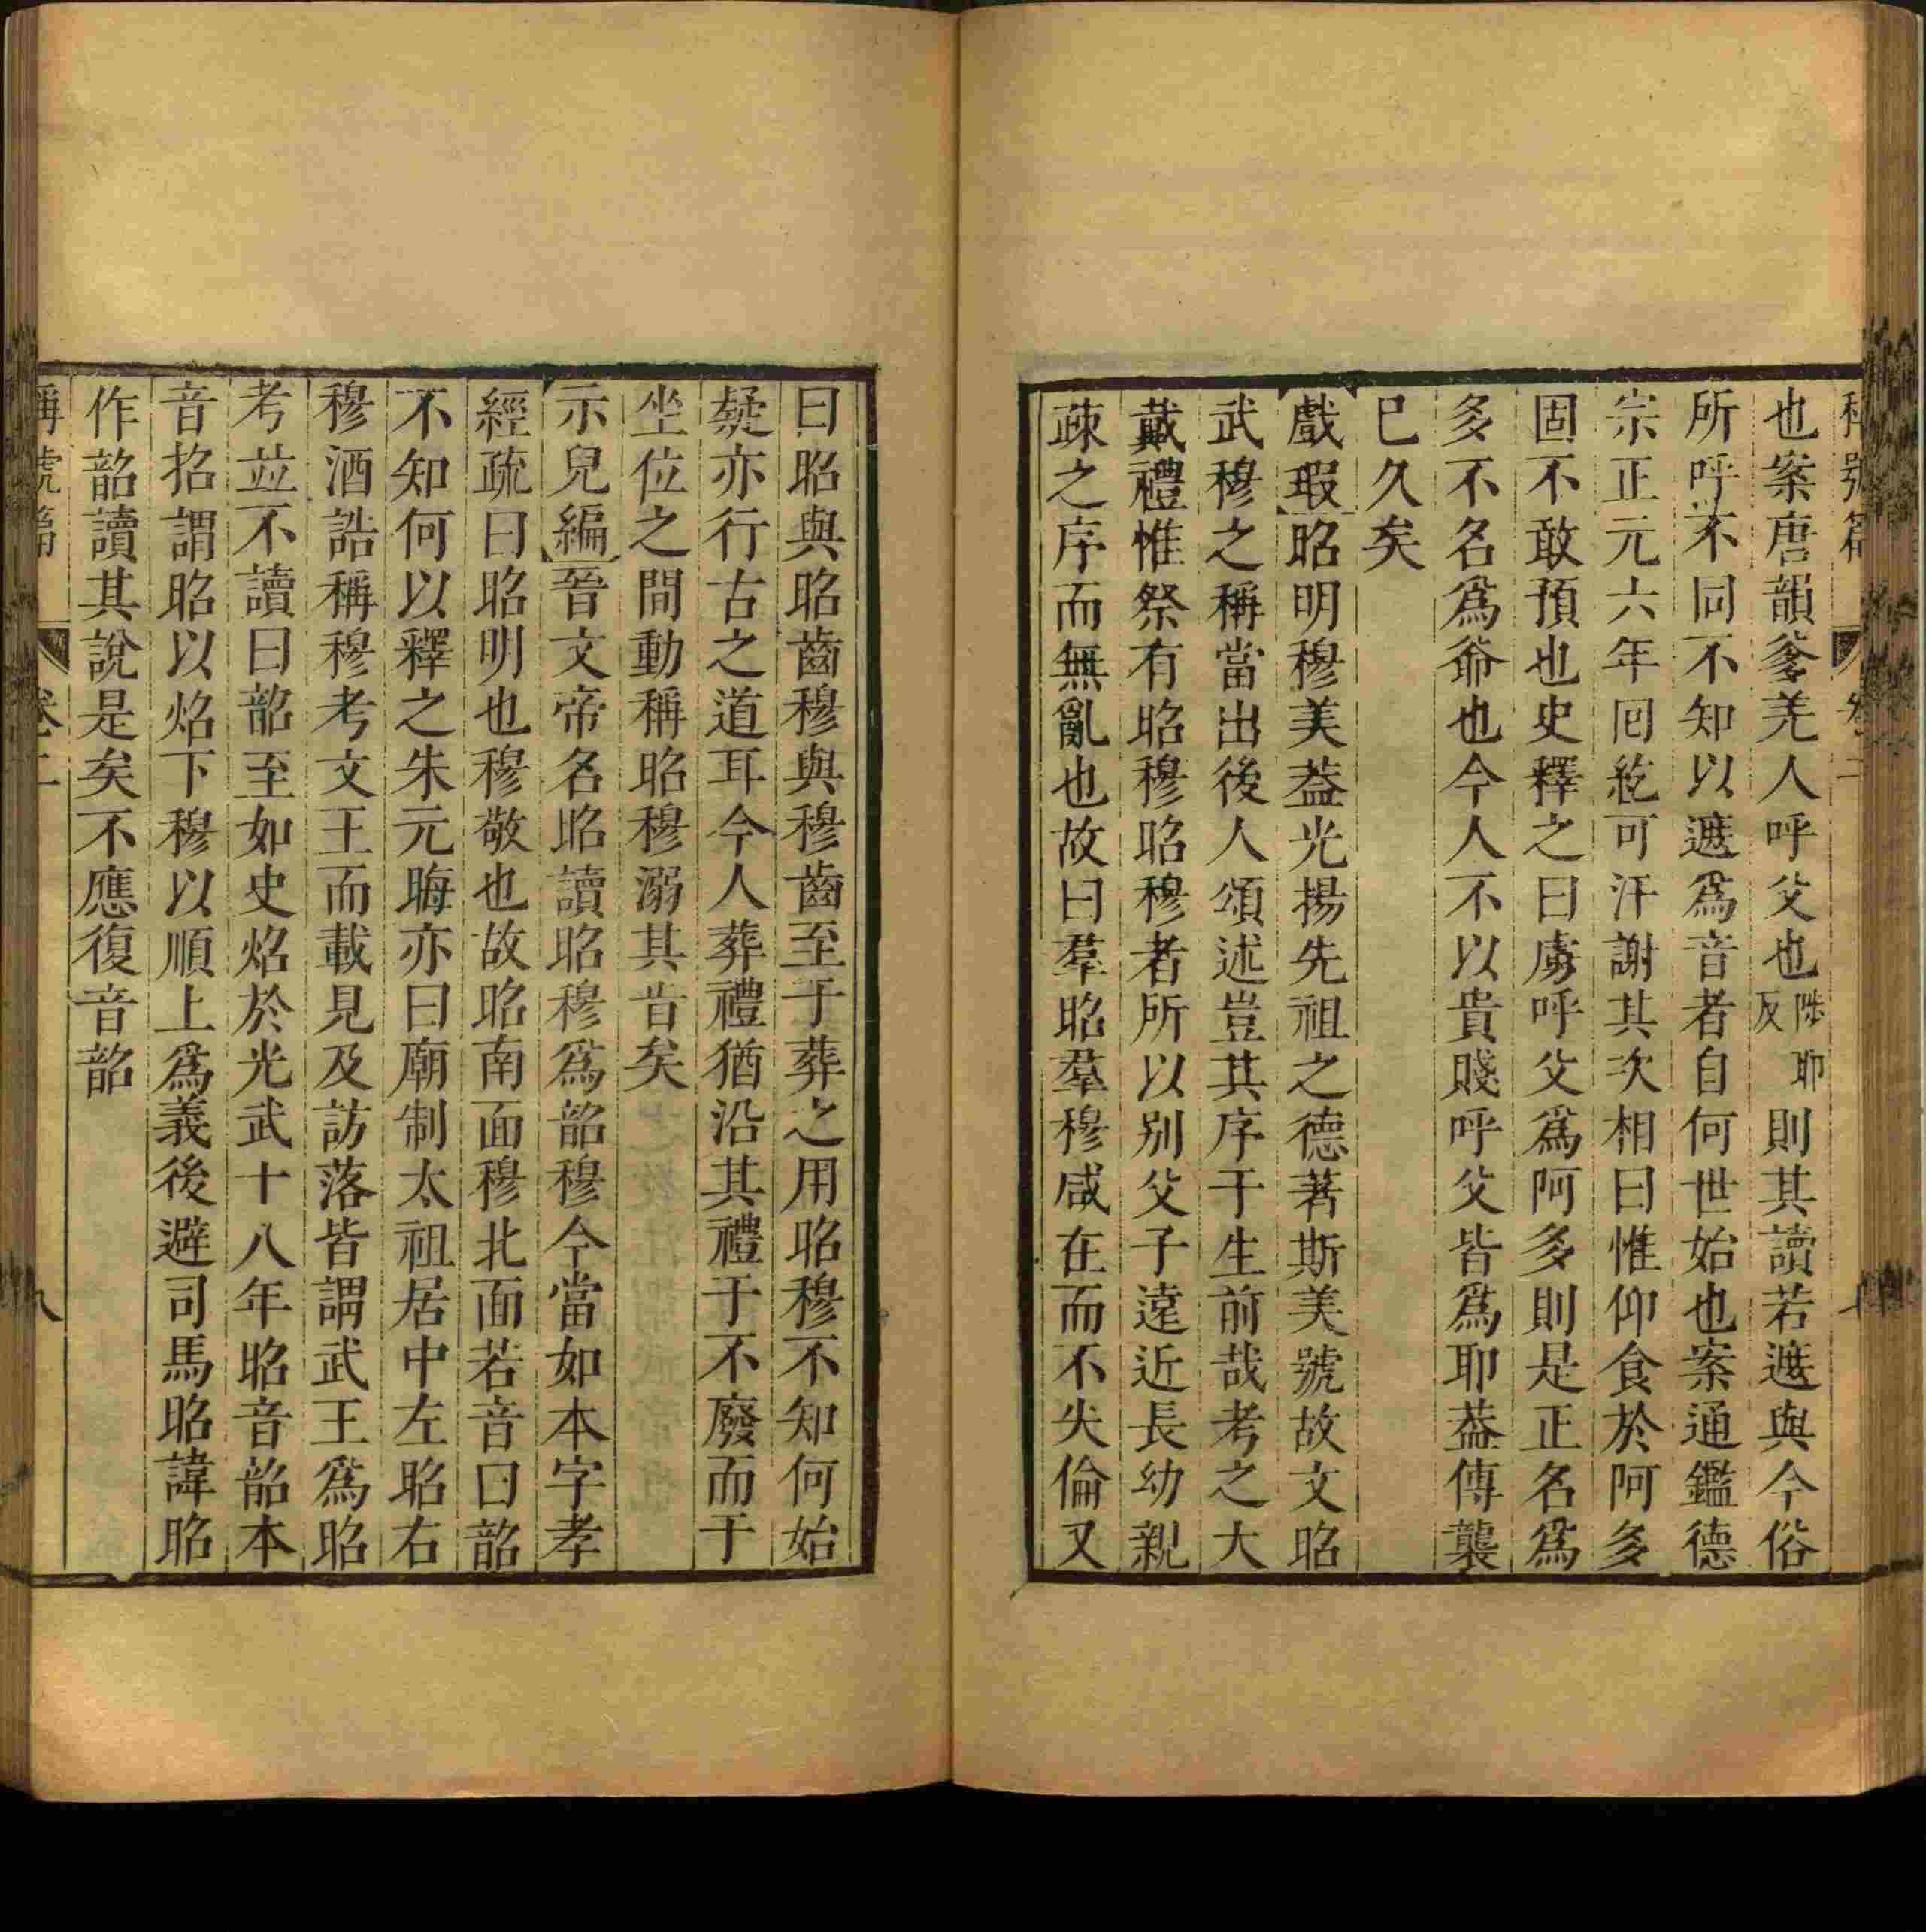 也案唐韻爹羌人呼父也陟耶反則其讀若遮與今俗
所呼不同不知以遮爲音者自何世始也案通鑑德
宗正元六年囘紇可汗謝其次相曰惟仰食於阿多
固不敢預也史釋之曰虜呼父爲阿多則是正名爲
多不名爲爺也今人不以貴賤呼父皆爲耶葢傳襲
已久矣
戲瑕昭明穆美葢光揚先祖之德著斯美號故文昭
武穆之稱當出後人頌述豈其序于生前哉考之大
戴禮惟祭有昭穆昭穆者所以别父子遠近長幼親
疎之序而無亂也故曰羣昭羣穆咸在而不失倫又
曰昭與昭齒穆與穆齒至于葬之用昭穆不知何始
疑亦行古之道耳今人葬禮猶沿其禮于不廢而于
坐位之間動稱昭穆溺其㫖矣
示兒編晉文帝名昭讀昭穆爲韶穆今當如本字孝
經疏曰昭明也穆敬也故昭南面穆北面若音曰韶
不知何以釋之朱元晦亦曰廟制太祖居中左昭右
穆酒誥稱穆考文王而載見及訪落皆謂武王爲昭
考並不讀曰韶至如史炤於光武十八年昭音韶本
音招謂昭以炤下穆以順上爲義後避司馬昭諱昭
作韶讀其說是矣不應復音韶
稱號篇 卷二 八